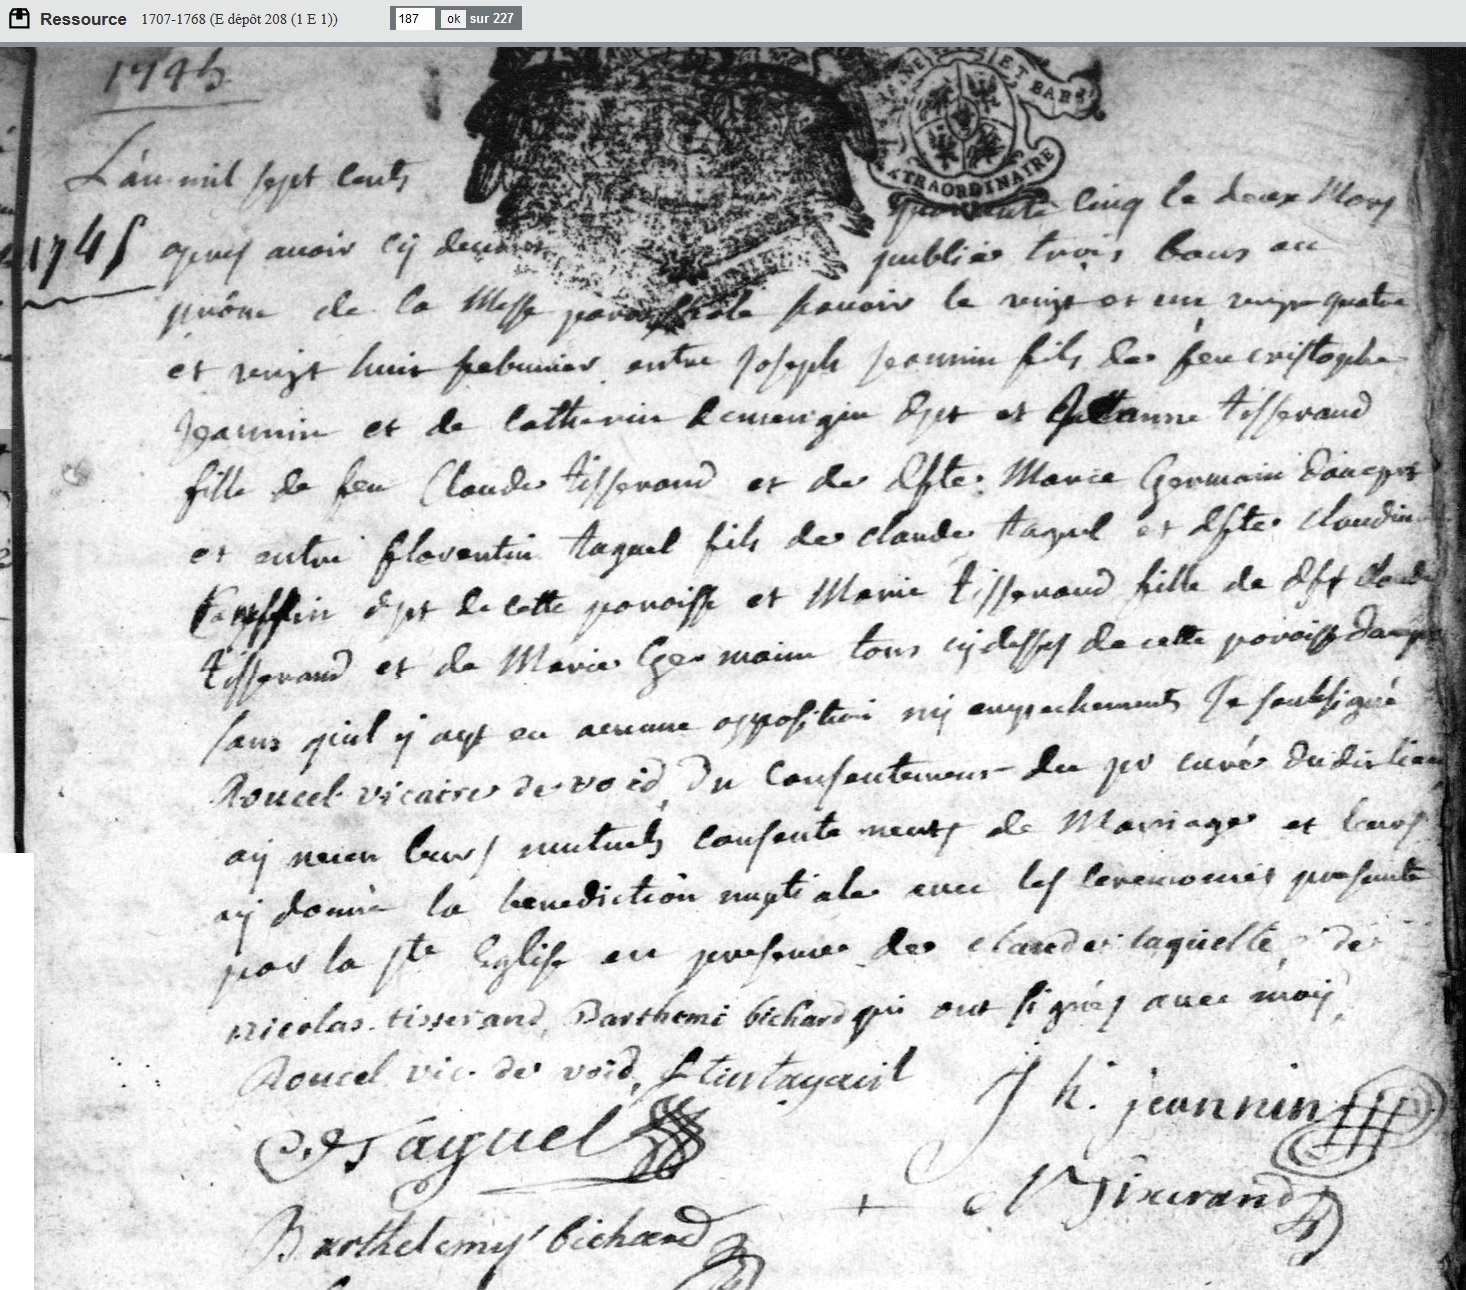 Ressource 1707-1768 (E dépôt 208 (1 E 1)) 187 ok sur 227
1745
NE ET BAR
EXTRAORDINAIRE
L'an mil sept cents quarante cinq le deux Mars
1745 apres avoir cy devant publiés trois bans au
prône de la Messe paroissiale scavoir le vingt et un vingt quatre
et vingt huit febvrier entre Joseph Jeannin fils de feu cristophe
Jeannin et de Catherin dpt et Jeanne tisserand
fille de feu Claude tisserand et de dfte Marie Germain
et entre florentin taguel fils de claude taguel et dfte claudine
dpt de cette paroisse et Marie tisserand fille de dft claude
tisserand et de Marie Germain tous cy dessus de cette paroisse
sans quil y ayt eu aucune opposition ny empechements Je soubsigné
Roucel vicaire de void du consentement du sr curé dudit lieu
ay receu leurs mutuels consentements de Mariage et leurs
ay donné la benediction nuptiale avec les ceremonies presente
par la ste Eglise en presence de claude taguelle, de
nicolas tisserand, Barthemi bichard qui ont signés avec moy,
Roucel vic de void,
J h. jeannin
C taguel
N Tixerand
+
Barthelemy bichard